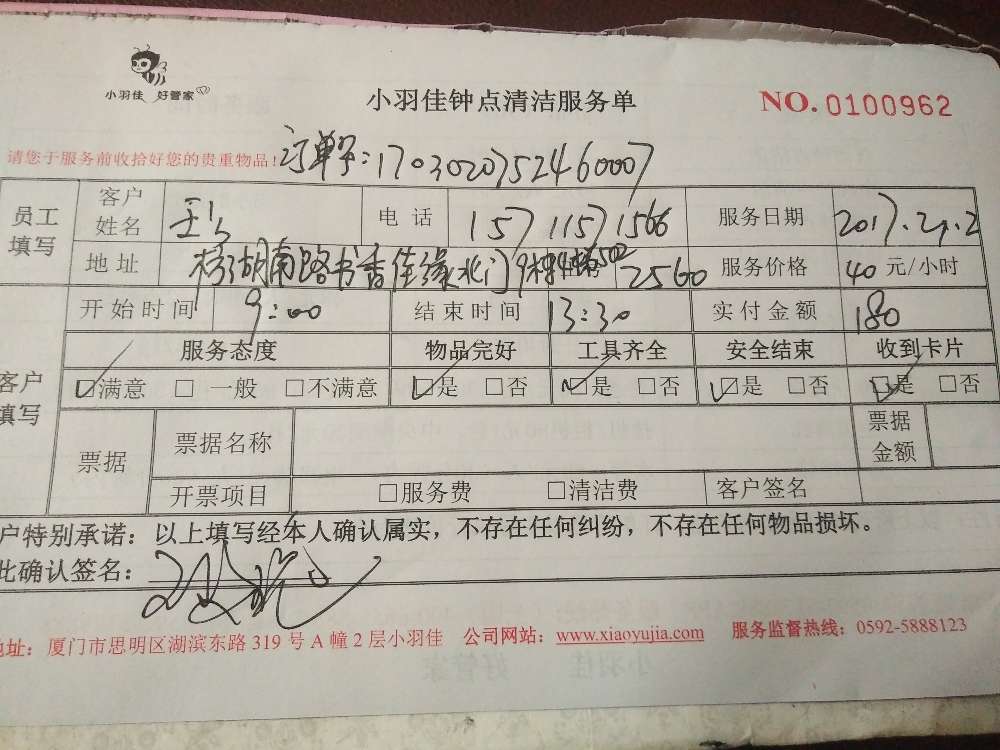 小羽佳 好管家
小羽佳钟点清洁服务单
NO. 0100962
请您于服务前收拾好您的贵重物品!
订单号:1703020752460007
员工填写 客户姓名 王 电话 15711571566 服务日期
地址 杨湖南路书香佳缘水门9栋 502 2560 服务价格 40 元/小时
开始时间 9:00 结束时间 13:30 实付金额 180
客户填写 服务态度 物品完好 工具齐全 安全结束 收到卡片
☑满意 □一般 □不满意 ☑是 □否 ☑是 □否 ☑是 □否 ☑是 □否
票据 票据名称 票据金额
开票项目 □服务费 □清洁费 客户签名
户特别承诺:以上填写经本人确认属实,不存在任何纠纷,不存在任何物品损坏。
此确认签名:
地址:厦门市思明区湖滨东路 319 号 A 幢 2 层小羽佳 公司网站:www.xiaoyujia.com 服务监督热线:0592-5888123